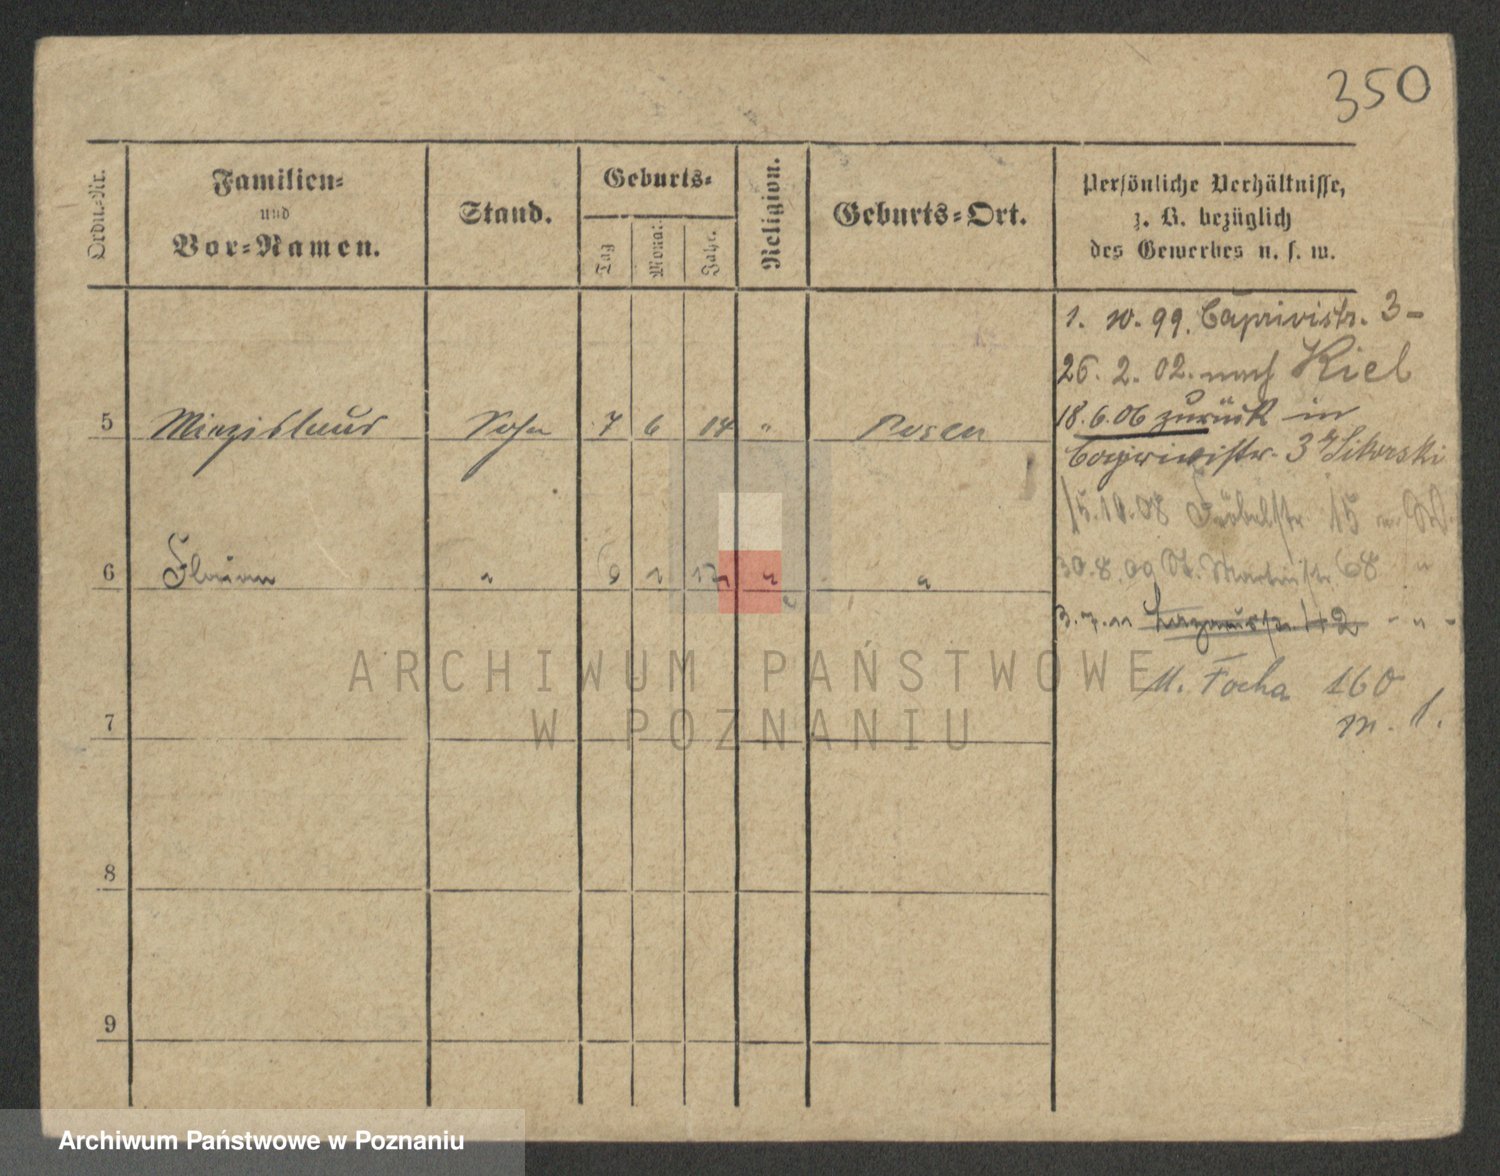 350
Ordn.-Nr.
Familien-
und
Vor-Namen.
Stand.
Geburts-
Tag
Monat
Jahr.
Religion.
Geburts-Ort.
Persönliche Verhältnisse,
z. B. bezüglich
des Gewerbes u. s. w.
1. 10. 99. Caprivistr. 3-
26. 2. 02. nach Kiel
18.6.06 zurück in
Caprivistr. 3 Sikorski
5 Miezislaus Sohn 7 6 14 " Posen
15.10.08 Fröbelstr 15
6 Florian " 6 1 17 " "
30.8.09 St. Martinstr 68 "
3.7.11 Lazarusstr. - " -
M. Focha 160
m. 1.
7
8
9
ARCHIWUM PAŃSTWOWE
W POZNANIU
Archiwum Państwowe w Poznaniu